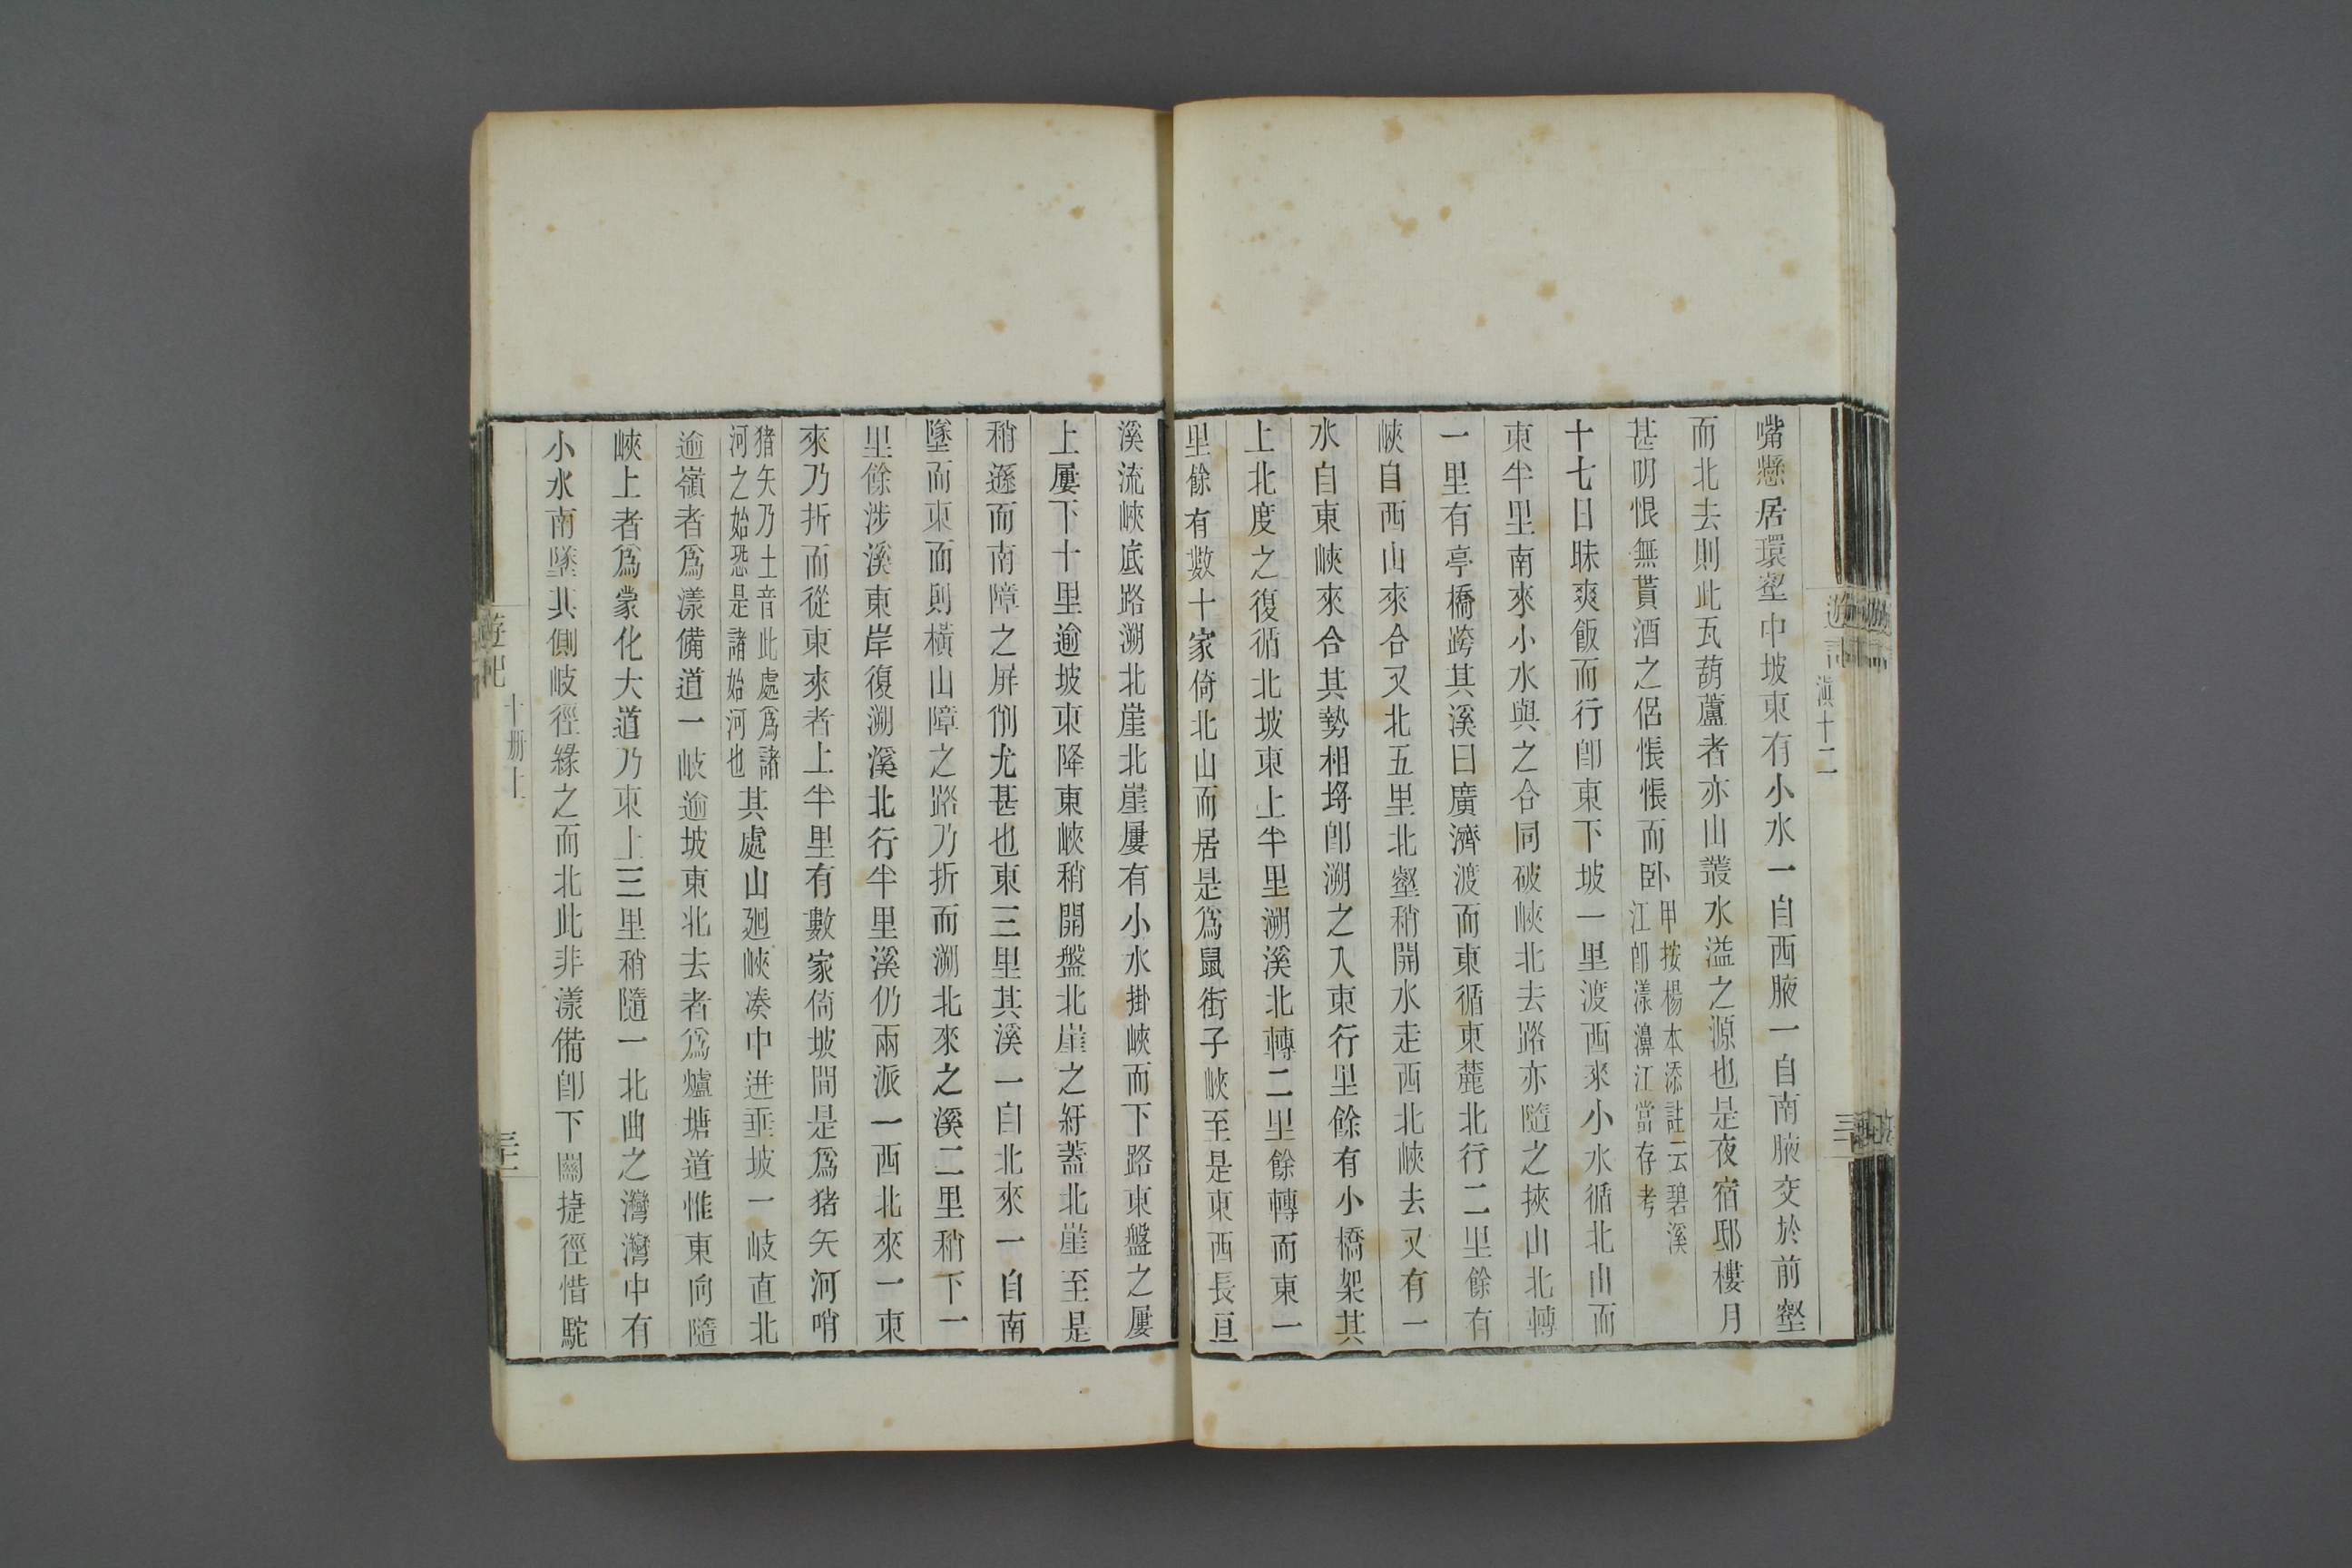 滇十二
嘴懸居環壑中坡東有小水一自西腋一自南腋交於前壑
而北去則此瓦葫蘆者亦山叢水溢之源也是夜宿邸樓月
甚明恨無貰酒之侶悵悵而卧甲按楊本添註云碧溪
江卽漾濞江當存考
十七日昧爽飯而行卽東下坡一里渡西來小水循北山而
東半里南來小水與之合同破峽北去路亦隨之挾山北轉
一里有亭橋跨其溪曰廣濟渡而東循東麓北行二里餘有
峽自西山來合又北五里北壑稍開水走西北峽去又有一
水自東峽來合其勢相埒卽溯之入東行里餘有小橋架其
上北度之復循北坡東上半里溯溪北轉二里餘轉而東一
里餘有數十家倚北山而居是爲鼠街子峽至是東西長亘
溪流峽底路溯北崖北崖屢有小水掛峽而下路東盤之屢
上屢下十里逾坡東降東峽稍開盤北崖之紆蓋北崖至是
稍遜而南障之屏削尤甚也東三里其溪一自北來一自南
墜而東而則橫山障之路乃折而溯北來之溪二里稍下一
里餘涉溪東岸復溯溪北行半里溪仍兩派一西北來一東
來乃折而從東來者上半里有數家倚坡間是爲猪矢河哨
猪矢乃土音此處爲諸
河之始恐是諸始河也其處山廻峽凑中迸垂坡一岐直北
逾嶺者爲漾備道一岐逾坡東北去者爲爐塘道惟東向隨
峽上者爲蒙化大道乃東上三里稍隨一北曲之灣灣中有
小水南墜其側岐徑緣之而北此非漾備卽下關捷徑惜駝
遊記 十册上